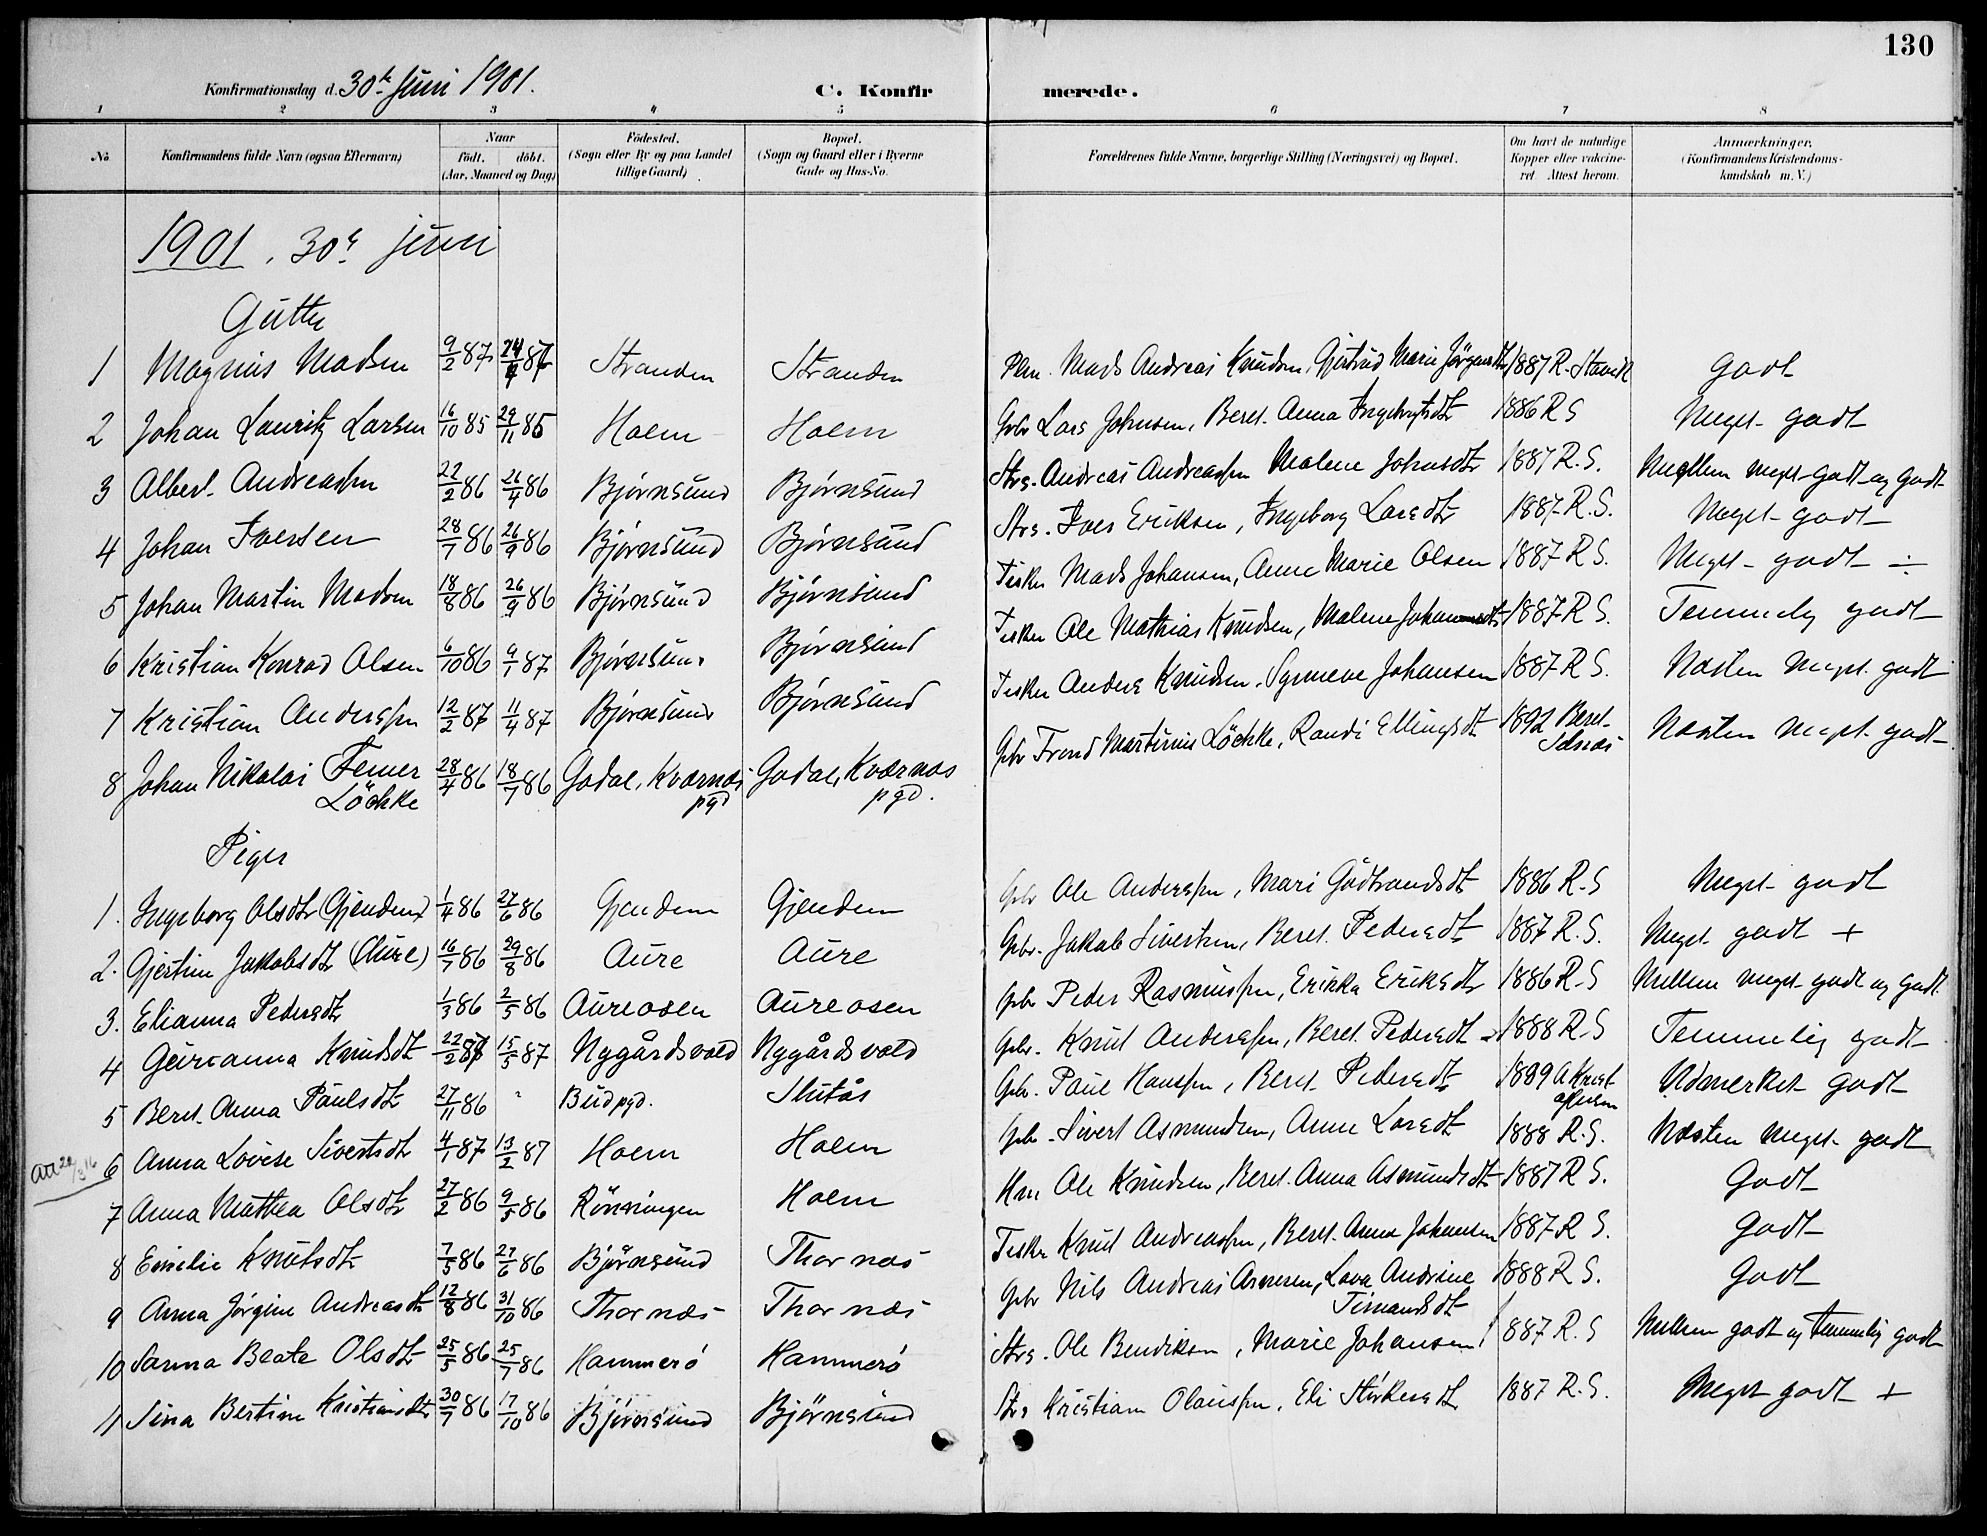 130
Konfirmationsdag d. 30te Juni 1901.
C. Konfirmerede.
1 2 3 4 5 6 7 8
No. Konfirmandens fulde Navn (ogsaa Efternavn) Naar født. døbt. (Aar, Maaned og Dag) Fødested. (Sogn eller By og paa Landet tillige Gaard) Bopæl. (Sogn og Gaard eller i Byerne Gade og Hus-No. Forældrenes fulde Navne, borgerlige Stilling (Næringsvei) og Bopæl. Om havt de naturlige Kopper eller vakcineret. Attest herom. Anmærkninger. (Konfirmandens Kristendomskundskab m. V.)
1901. 30te Juni
Gutter
1 Magnus Madsen 9/2 87 24/4 87 Stranden Stranden Mads Andreas Knudsen, Gjertrud Marie Jørgensdtr 1887 R. Strandt Godt
2 Johan Lauritz Larsen 16/10 85 29/11 85 Holm Holm Gbr Lars Johnsen, Beret Anna Ingebrigtsdtr 1886 R S Meget godt
3 Albert Andreassen 22/2 86 26/4 86 Bjørnsund Bjørnsund Strs. Andreas Andreassen Malene Johnsdtr 1887 R. S. Mellem meget godt og godt
4 Johan Iversen 28/7 86 26/9 86 Bjørnsund Bjørnsund Strs. Iver Eriksen, Ingeborg Larsdtr 1887 R. S. Meget godt
5 Johan Martin Madsen 18/8 86 26/9 86 Bjørnsund Bjørnsund Fisker Mads Johansen, Anne Marie Olsen 1887 R S. Meget godt ÷
6 Kristian Konrad Olsen 6/10 86 9/1 87 Bjørnsund Bjørnsund Fisker Ole Mathias Knudsen, Malene Johannesdtr 1887 R S. Temmelig godt
7 Kristian Anderssen 12/2 87 11/4 87 Bjørnsund Bjørnsund Fisker Anders Knudsen, Synneve Johansen 1887 R S. Næsten meget godt
8 Johan Nikolai Femer Löchke 28/4 86 18/7 86 Godal, Kværnæs pgd Godal, Kværnæs pgd. Gbr Trond Martinus Löchke, Randi Ellingsdt 1892 Beret Næsten meget godt
Piger
1. Ingeborg Olsdtr (Gjendem) 1/4 86 27/6 86 Gjendem Gjendem Gbr Ole Anderssen, Mari Gudbrandsdt 1886 R. S Meget godt
2. Gjertine Jakobsdt (Aure) 16/7 86 29/8 86 Aure Aure Gbr. Jakob Sivertsen, Beret Pedersdt 1887 R. S. Meget godt +
3. Elianna Pedersdtr 1/3 86 2/5 86 Aureosen Aureosen Gbr Peder Rasmussen, Erikka Eriksdtr 1886 R. S Mellem meget godt og godt
4 Gurianna Knudsdt 22/2 87 15/5 87 Nygårdsvold Nygårdsvold Gbr. Knut Anderssen, Beret Pedersdt 1888 R. S Temmelig godt
5 Beret Anna Paulsdtr 27/11 86 " Bud pgd. Slutås Gbr. Paul Hanssen, Beret Pedersdt 1889 A Krist Udmerket godt
6 Anna Lovise Sivertsdtr 4/1 87 13/2 87 Holm Holm Gbr. Sivert Asmundsen, Anne Larsdt 1888 R. S. Næsten meget godt
7 Anna Mathea Olsdtr 27/2 86 9/5 86 Rönningen Holm Hm Ole Knudsen, Beret Anna Asmundsdt 1887 R S. Godt
8 Emilie Knutsdtr 7/5 86 27/6 86 Bjørnsund Thornæs Fisker Knut Andreassen, Beret Anna Johansen 1887 R S. Godt
9 Anna Jørgine Andreasdtr 12/8 86 31/10 86 Thornæs Thornæs Gbr Nils Andreas Arnesen, Lava Andrine 1888 R S. Godt
10 Sanna Beate Olsdtr 25/5 86 25/7 86 Hammerø Hammerø Strs. Ole Bendiksen, Marie Johansen 1887 R. S Mellem godt og temmelig godt
11 Sina Bertine Kristiansdtr 30/7 86 17/10 86 Bjørnsund Bjørnsund Strs Kristian Olaussen, Eli Størkersdt 1887 R. S. Meget godt +